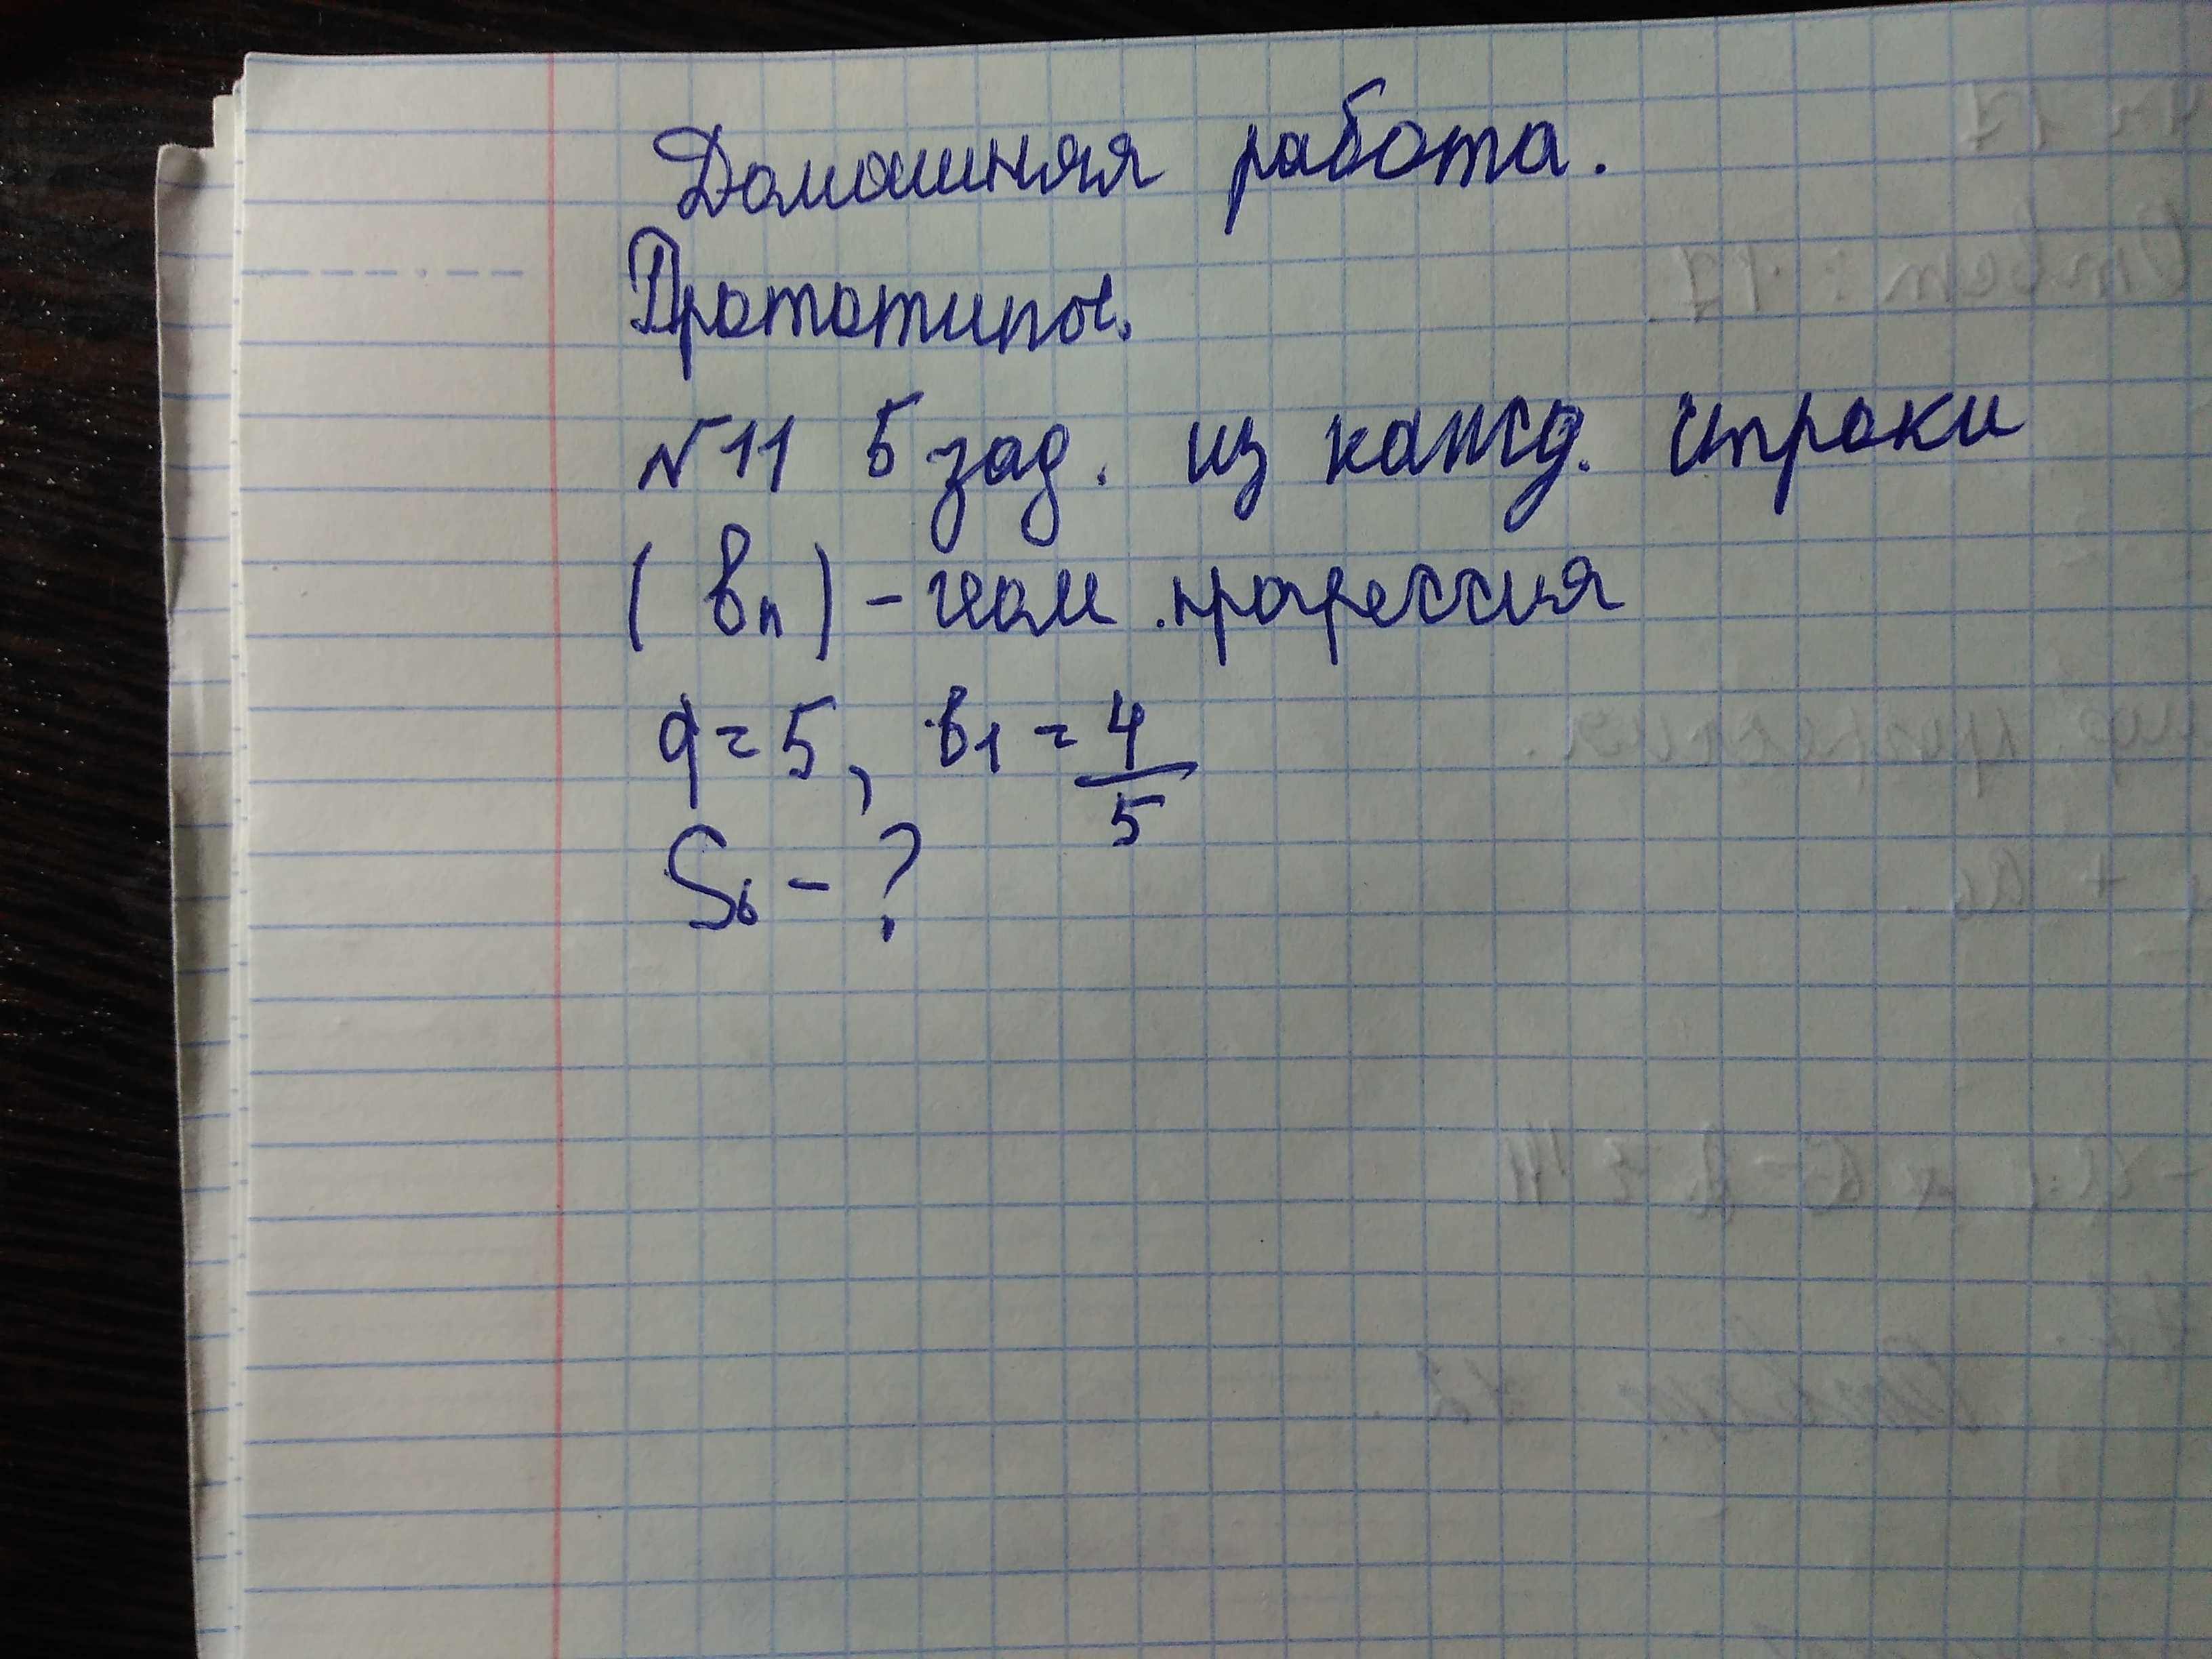 Домашняя работа.
Прототипы.
№11 5 зад. из кажд. строки
(bn) - геом. прогрессия
q = 5, b1 = 4/5
S6 - ?